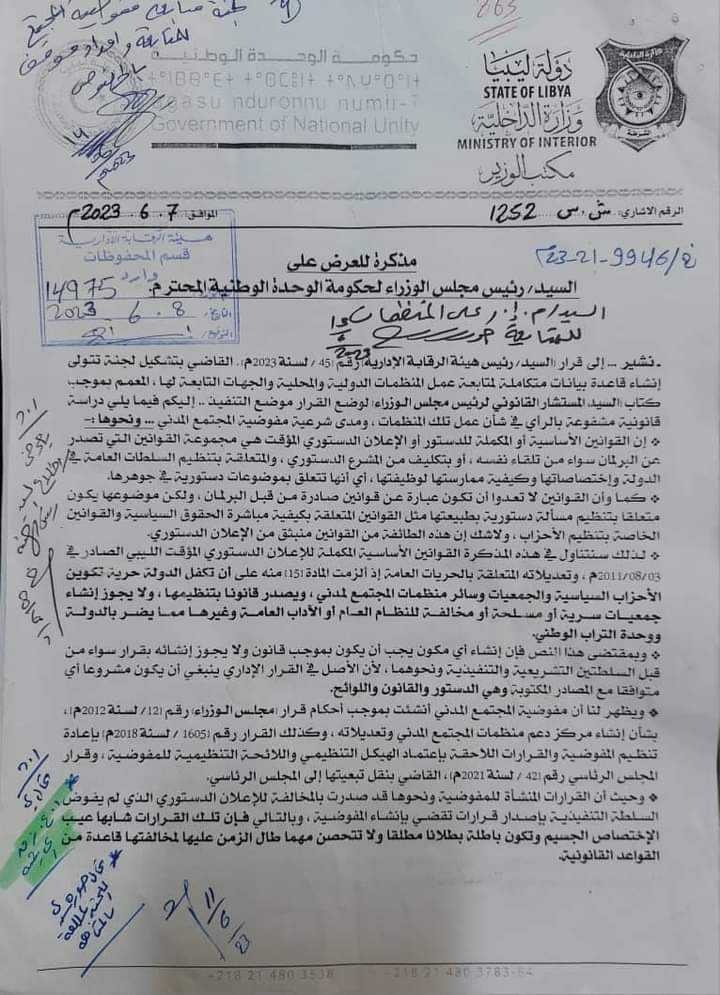 دولة ليبيا
STATE OF LIBYA
وزارة الداخلية
MINISTRY OF INTERIOR
مكتب الوزير
حكومة الوحدة الوطنية
Government of National Unity
الرقم الاشاري: ش. س 1252
الموافق: 7. 6. 2023
هيئة الرقابة الإدارية
قسم المحفوظات
وارد
14975
2023 6 8
مذكرة للعرض على
السيد/ رئيس مجلس الوزراء لحكومة الوحدة الوطنية المحترم
23-21-9946
ـ نشير ... إلى قرار (السيد/ رئيس هيئة الرقابة الإدارية) رقم (45 / لسنة 2023م)، القاضي بتشكيل لجنة تتولى
إنشاء قاعدة بيانات متكاملة لمتابعة عمل المنظمات الدولية والمحلية والجهات التابعة لها، المعمم بموجب
كتاب (السيد المستشار القانوني لرئيس مجلس الوزراء) لوضع القرار موضع التنفيذ .. إليكم فيما يلي دراسة
قانونية مشفوعة بالرأي في شأن عمل تلك المنظمات ، ومدى شرعية مفوضية المجتمع المدني ... ونحوها :ـ
إن القوانين الأساسية أو المكملة للدستور أو الإعلان الدستوري المؤقت هي مجموعة القوانين التي تصدر
عن البرلمان سواء من تلقاء نفسه ، أو بتكليف من المشرع الدستوري ، والمتعلقة بتنظيم السلطات العامة في
الدولة وإختصاصاتها وكيفية ممارستها لوظيفتها ، أي أنها تتعلق بموضوعات دستورية في جوهرها.
كما وأن القوانين لا تعدوا أن تكون عبارة عن قوانين صادرة من قبل البرلمان ، ولكن موضوعها يكون
متعلقا بتنظيم مسألة دستورية بطبيعتها مثل القوانين المتعلقة بكيفية مباشرة الحقوق السياسية والقوانين
الخاصة بتنظيم الأحزاب ، ولاشك إن هذه الطائفة من القوانين منبثق من الإعلان الدستوري.
لذلك سنتناول في هذه المذكرة القوانين الأساسية المكملة للإعلان الدستوري المؤقت الليبي الصادر في
2011/08/03م ، وتعديلاته المتعلقة بالحريات العامة إذ ألزمت المادة (15) منه على أن تكفل الدولة حرية تكوين
الأحزاب السياسية والجمعيات وسائر منظمات المجتمع لمدني ، ويصدر قانونا بتنظيمها ، ولا يجوز إنشاء
جمعيات سرية أو مسلحة أو مخالفة للنظام العام أو الآداب العامة وغيرها مما يضر بالدولة
ووحدة التراب الوطني.
وبمقتضى هذا النص فإن إنشاء أي مكون يجب أن يكون بموجب قانون ولا يجوز إنشائه بقرار سواء من
قبل السلطتين التشريعية والتنفيذية ونحوهما ، لأن الأصل في القرار الإداري ينبغي أن يكون مشروعا أي
متوافقا مع المصادر المكتوبة وهي الدستور والقانون واللوائح.
ويظهر لنا أن مفوضية المجتمع المدني أنشئت بموجب أحكام قرار (مجلس الوزراء) رقم (12/ لسنة 2012م)،
بشأن إنشاء مركز دعم منظمات المجتمع المدني وتعديلاته ، وكذلك القرار رقم (1605 / لسنة 2018م) بإعادة
تنظيم المفوضية والقرارات اللاحقة بإعتماد الهيكل التنظيمي واللائحة التنظيمية للمفوضية ، وقرار
المجلس الرئاسي رقم (42 / لسنة 2021م)، القاضي بنقل تبعيتها إلى المجلس الرئاسي.
وحيث أن القرارات المنشأة للمفوضية ونحوها قد صدرت بالمخالفة للإعلان الدستوري الذي لم يفوض
السلطة التنفيذية بإصدار قرارات تقضي بإنشاء المفوضية ، وبالتالي فإن تلك القرارات شابها عيب
الإختصاص الجسيم وتكون باطلة بطلانا مطلقا ولا تتحصن مهما طال الزمن عليها لمخالفتها قاعدة من
القواعد القانونية.
11/6/23
+218 21 480 3538
+218 21 480 3783-84